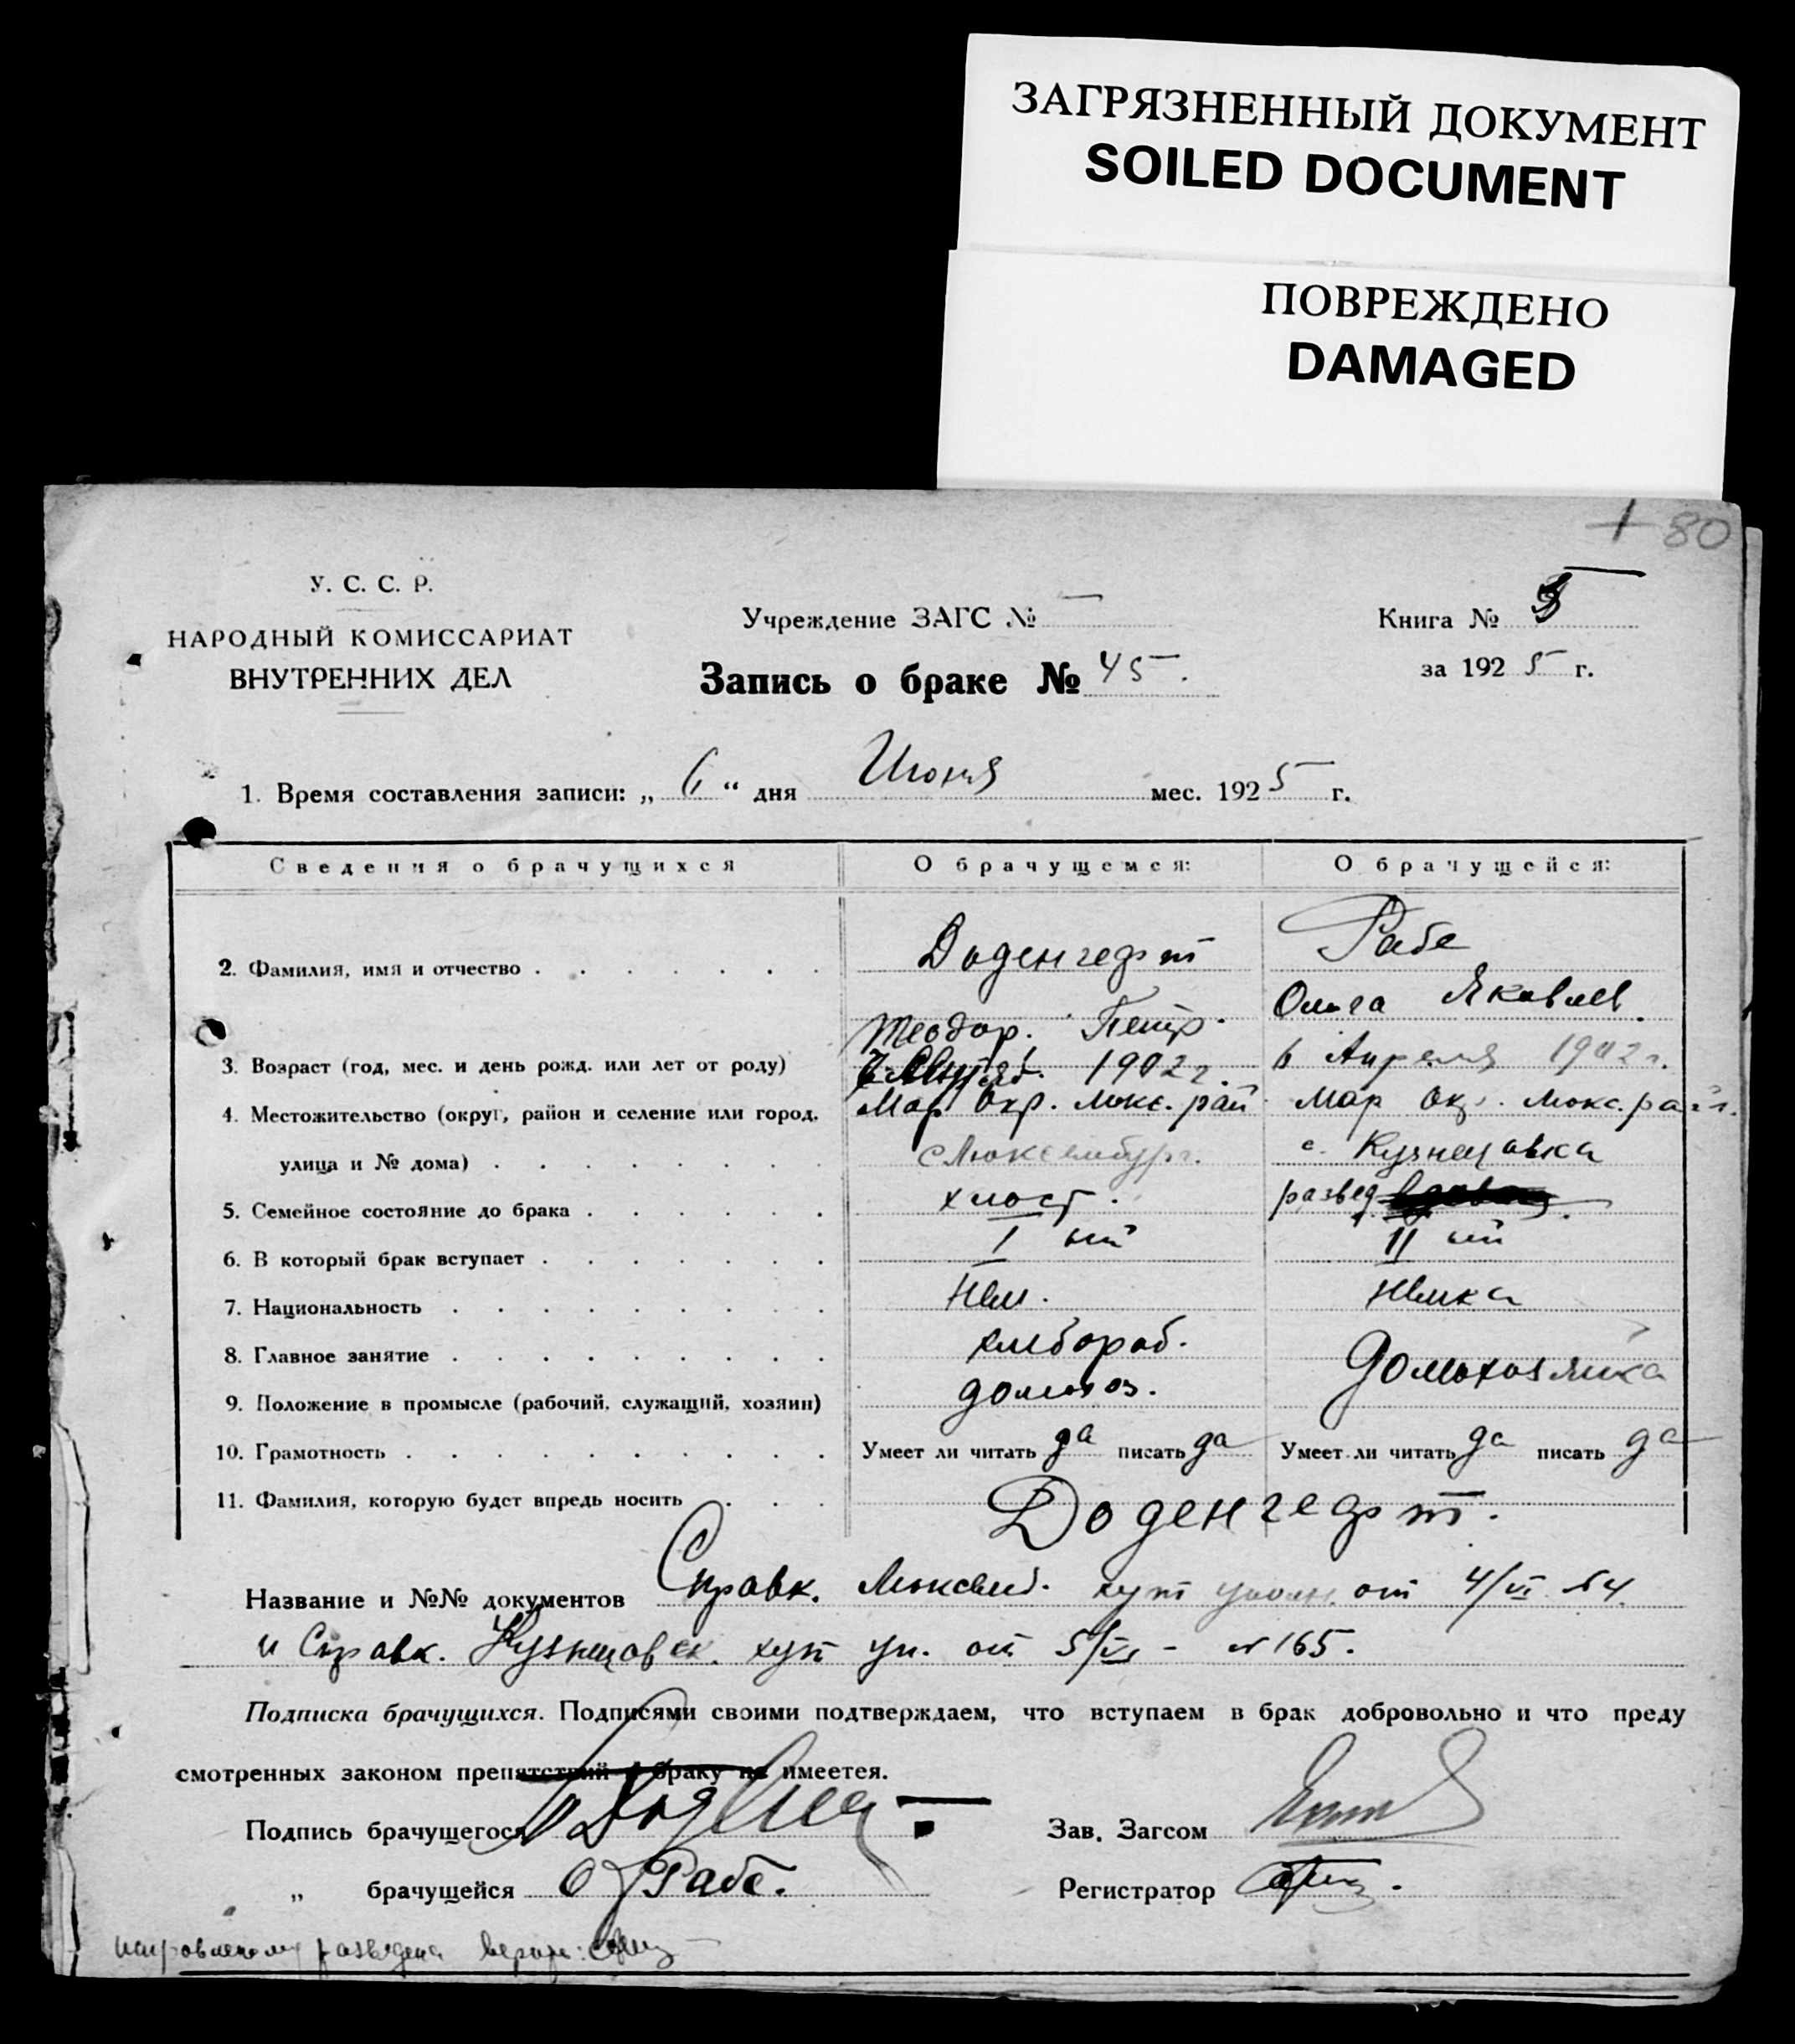 ЗАГРЯЗНЕННЫЙ ДОКУМЕНТ
SOILED DOCUMENT
ПОВРЕЖДЕНО
DAMAGED
80
У. С. С. Р.
НАРОДНЫЙ КОМИССАРИАТ
ВНУТРЕННИХ ДЕЛ
Учреждение ЗАГС № —
Запись о браке № 45.
Книга №
за 1925 г.
1. Время составления записи: „ 6 “ дня Июня мес. 1925 г.
Сведения о брачущихся О брачущемся: О брачущейся:
2. Фамилия, имя и отчество Доденгефт Рабе
Теодор. Петр. Ольга Яковлев.
3. Возраст (год, мес. и день рожд. или лет от роду) 1902 г. 6 Апреля 1902 г.
4. Местожительство (округ, район и селение или город, Мар Окр. Люкс. рай Мар Окр. Люкс. райн.
улица и № дома) с Люксембург. с. Кузнецовка
5. Семейное состояние до брака холост. развед.
6. В который брак вступает I ый II ый
7. Национальность Нем. Немка
8. Главное занятие хлебороб. Домохозяйка
9. Положение в промысле (рабочий, служащий, хозяин) домохоз.
10. Грамотность Умеет ли читать да писать да Умеет ли читать да писать да
11. Фамилия, которую будет впредь носить Доденгефт.
Название и №№ документов Справк. Люксемб. хут от 4/VI №4.
и Справк. Кузнецовск. хут уп. от 5/VI - № 165.
Подписка брачущихся. Подписями своими подтверждаем, что вступаем в брак добровольно и что преду
смотренных законом препятствий к браку не имеется.
Подпись брачущегося
Зав. Загсом
„ брачущейся О Рабе.
Регистратор
разведена